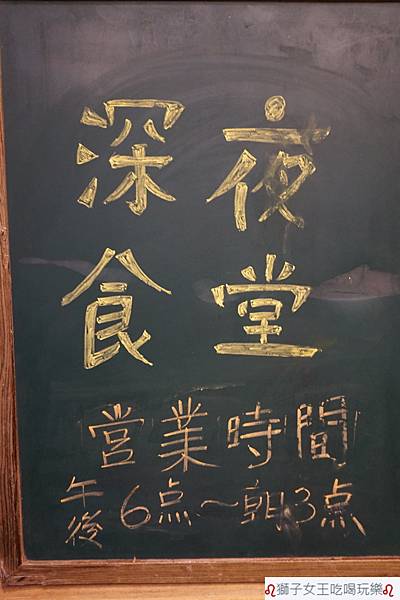 深夜
食堂
営業時間
午後6点～朝3点
♌獅子女王吃喝玩樂♌